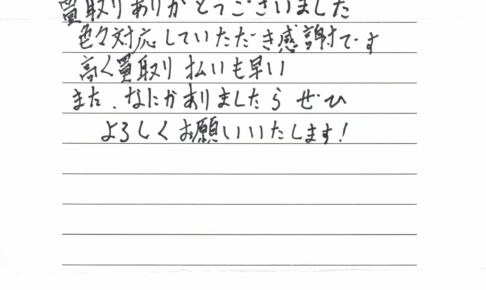 買取りありがとうございました
色々対応していただき感謝です
高く買取り払いも早い
また、なにかありましたらぜひ
よろしくお願いいたします!